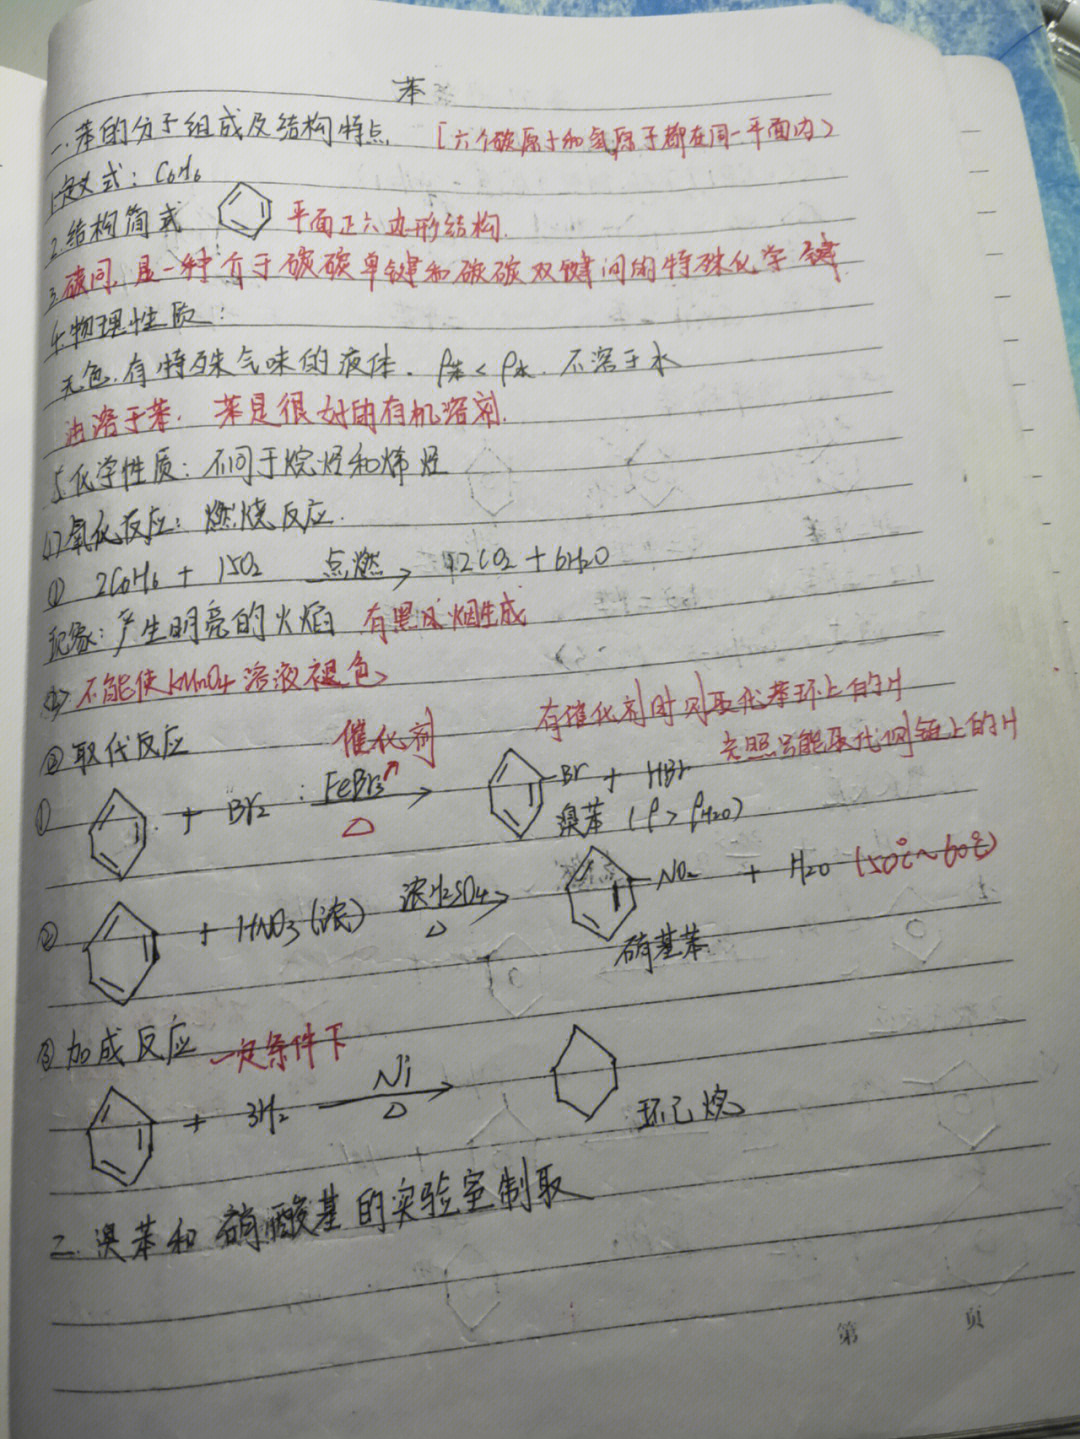 苯
一.苯的分子组成及结构特点 (六个碳原子和氢原子都在同一平面内)
1.式: C6H6
2.结构简式 平面正六边形结构.
3.碳间,是一种介于碳碳单键和碳碳双键间的特殊化学键
4.物理性质:
无色.有特殊气味的液体. ρ苯<ρ水. 不溶于水
油溶于苯. 苯是很好的有机溶剂.
5.化学性质: 不同于烷烃和烯烃
(1)氧化反应: 燃烧反应.
① 2C6H6 + 15O2 点燃→ 12CO2 + 6H2O
现象: 产生明亮的火焰 有黑烟生成
不能使KMnO4溶液褪色
②取代反应 催化剂 有催化剂时则取代苯环上的H
光照只能取代侧链上的H
① + Br2 FeBr3 △ → Br + HBr
溴苯 (ρ>ρH2O)
② + HNO3(浓) 浓H2SO4 △ → NO2 + H2O (50℃~60℃)
硝基苯.
③加成反应 一定条件下
+ 3H2 Ni △ →
环己烷
二.溴苯和硝酸基的实验室制取
第 页